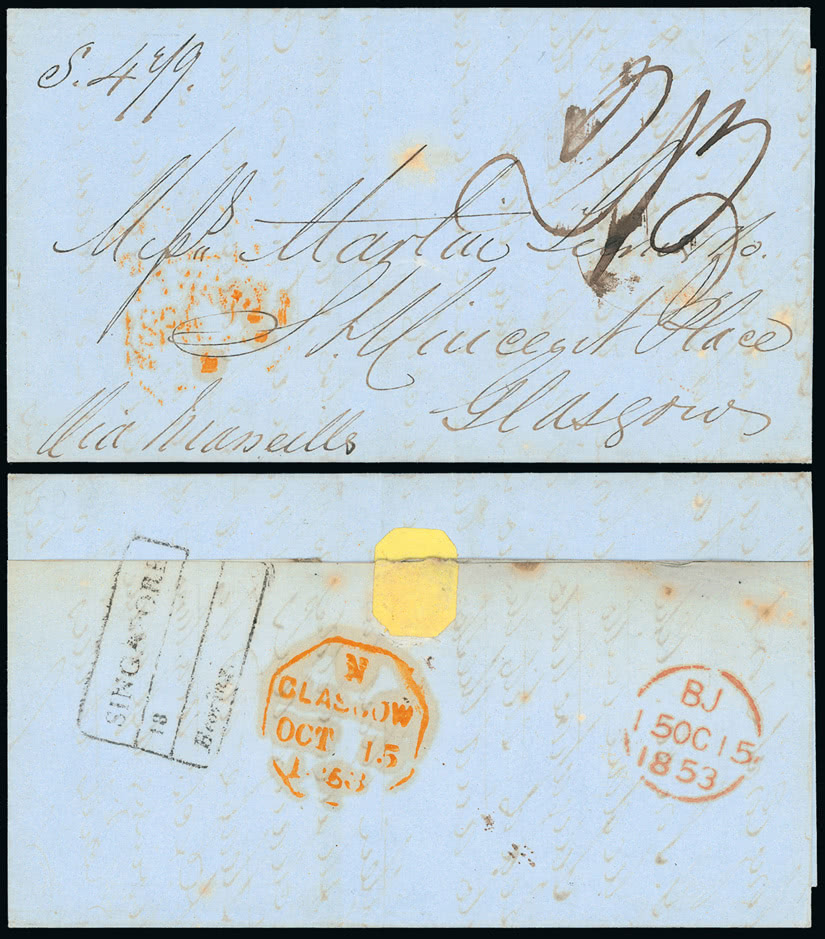 S. 4/9.
2/3
Messrs Martin
St Vincent Place
Glasgow
Via Marseilles
SINGAPORE
18
N
GLASGOW
OCT 15
1853
BJ
15OC15
1853